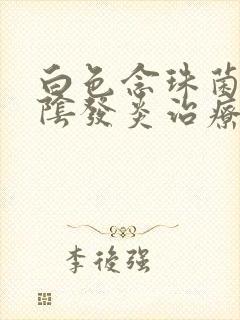 白色念珠菌
陰發炎治療
李後强